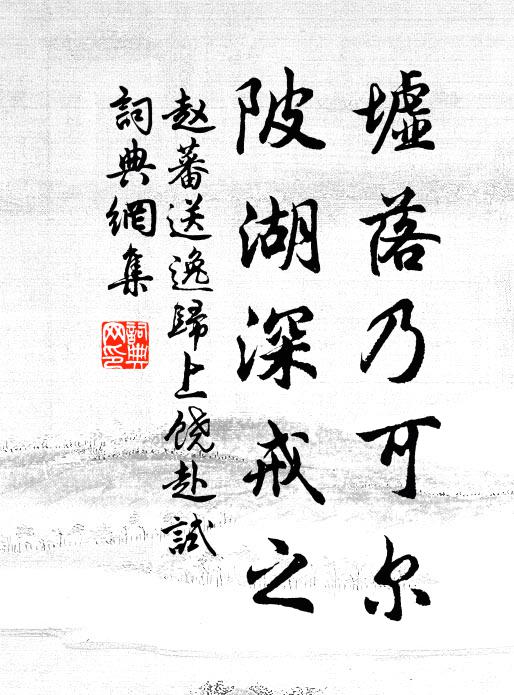 墟落乃可尔
陂湖深戒之
赵蕃送逸歸上饶赴試
詞典網集
詞典网印